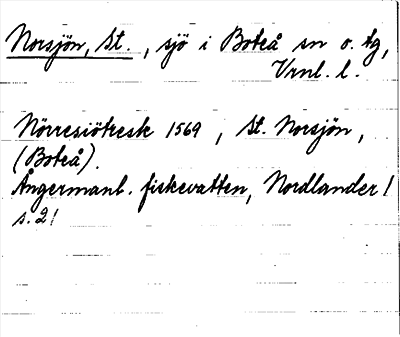 Norsjön, St., sjö i Boteå sn o. tg,
Vrnl. l.
Nörresiötresk 1569, St. Norsjön,
(Boteå).
Ångermanl. fiskevatten, Nordlander 1
s. 21